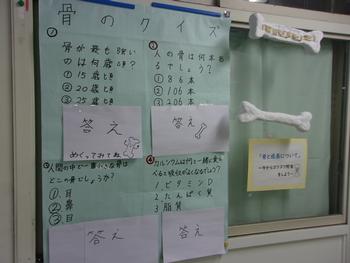 骨のクイズ
①
骨が最も強い
のは何歳ごろ?
①15歳ごろ
②20歳ごろ
③25歳ごろ
答え
めくってみてね
②
人の骨は何本あ
るでしょう?
①86本
②106本
③206本
答え
③
人間の中で一番小さな骨は
どこの骨でしょうか?
①耳
②鼻
③目
答え
④
カルシウムは何と一緒に食
べると吸収がよくなるでしょう?
1.ビタミンD
2.たんぱく質
3.脂質
答え
「骨と成長について」